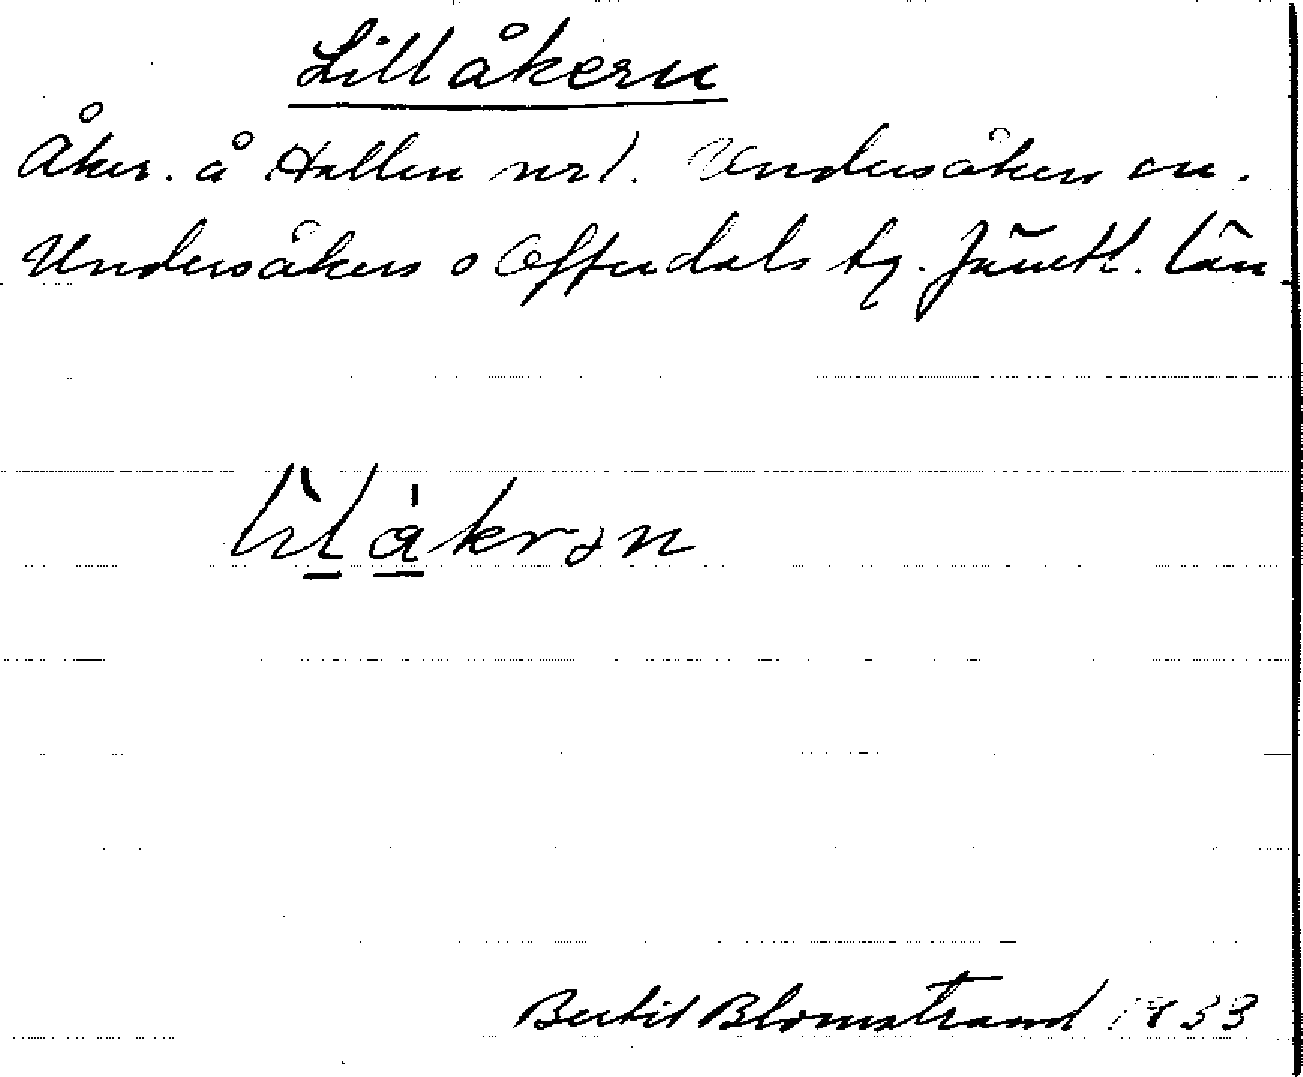 Lillåkern
Åker. å Hallen nr 1. Undersåkers sn.
Undersåkers o Offerdals tg. Jämtl. län.
lìlåkrən
Bertil Blomstrand 1933